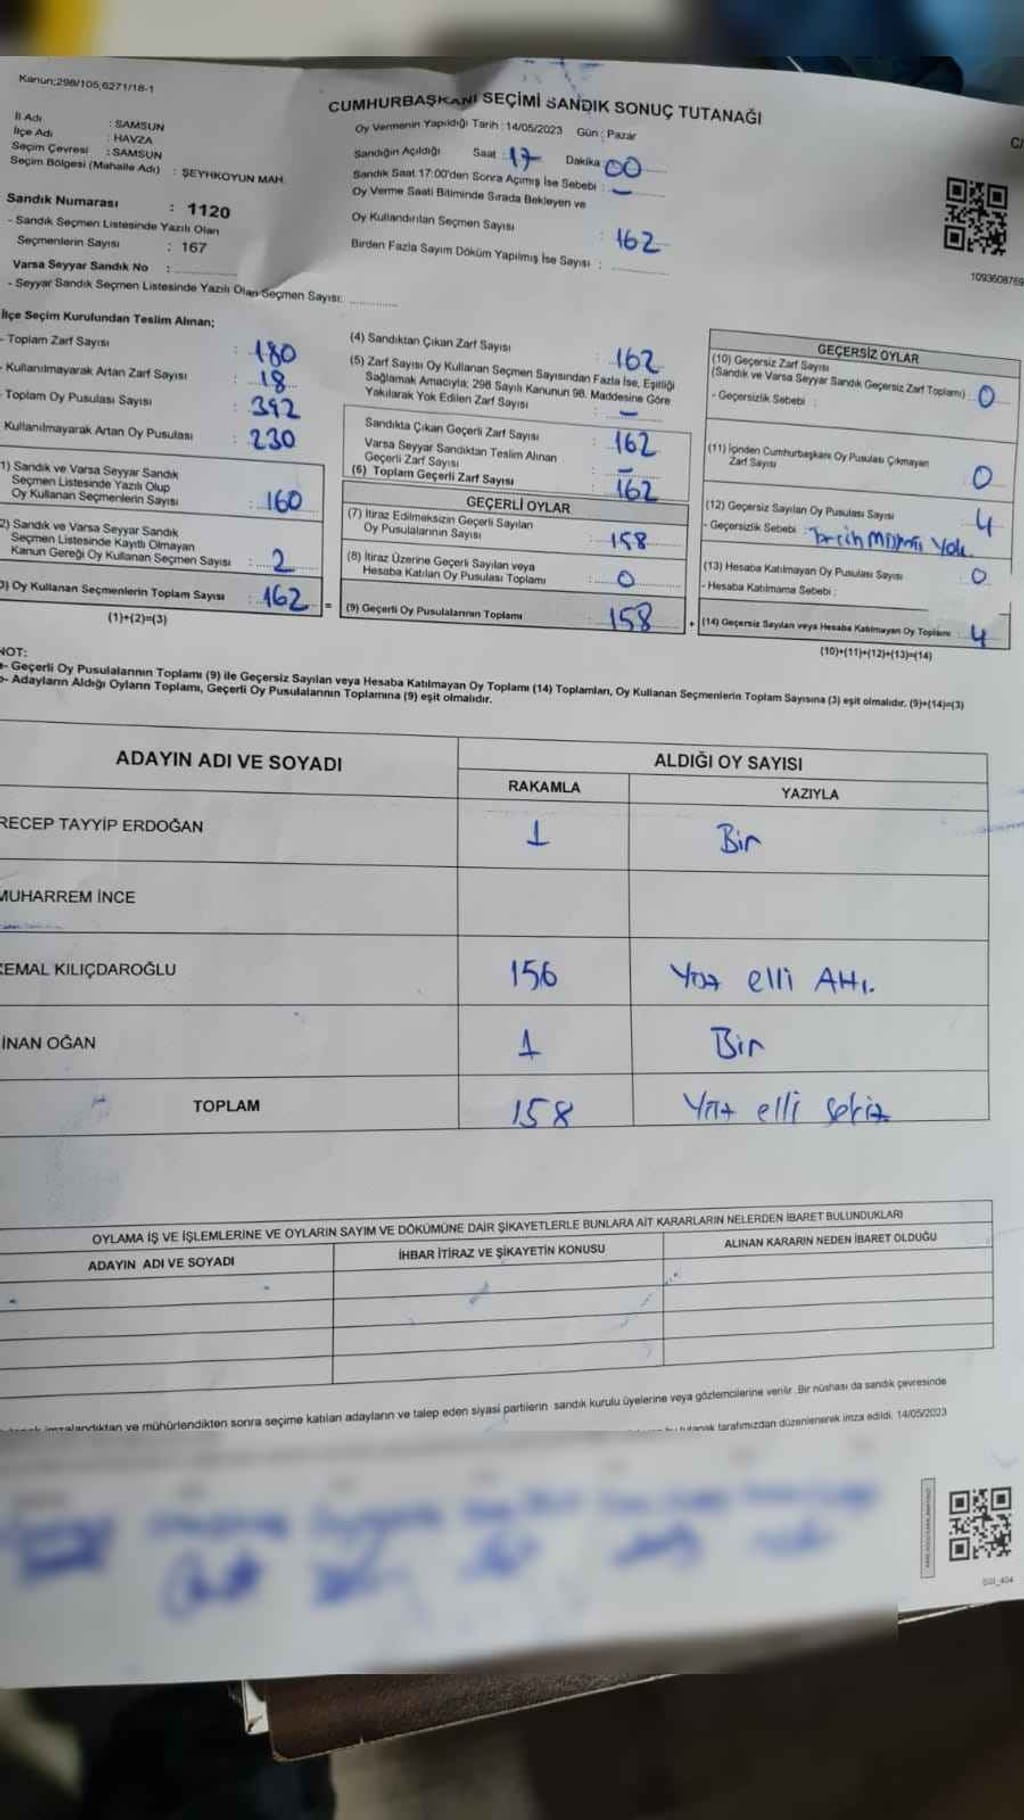 Kanun:298/105,6271/18-1
CUMHURBAŞKANI SEÇİMİ SANDIK SONUÇ TUTANAĞI
İl Adı : SAMSUN
İlçe Adı : HAVZA
Seçim Çevresi : SAMSUN
Seçim Bölgesi (Mahalle Adı) : ŞEYHKOYUN MAH.
Sandık Numarası : 1120
- Sandık Seçmen Listesinde Yazılı Olan
Seçmenlerin Sayısı : 167
Varsa Seyyar Sandık No :
- Seyyar Sandık Seçmen Listesinde Yazılı Olan Seçmen Sayısı:
Oy Vermenin Yapıldığı Tarih : 14/05/2023 Gün : Pazar
Sandığın Açıldığı Saat : 17 Dakika 00
Sandık Saat 17:00'den Sonra Açımış İse Sebebi : -
Oy Verme Saati Bitiminde Sırada Bekleyen ve
Oy Kullandırılan Seçmen Sayısı : 162
Birden Fazla Sayım Döküm Yapılmış İse Sayısı :
C/
1093608769
İlçe Seçim Kurulundan Teslim Alınan;
- Toplam Zarf Sayısı : 180
- Kullanılmayarak Artan Zarf Sayısı : 18
- Toplam Oy Pusulası Sayısı : 392
Kullanılmayarak Artan Oy Pusulası : 230
1) Sandık ve Varsa Seyyar Sandık
Seçmen Listesinde Yazılı Olup
Oy Kullanan Seçmenlerin Sayısı : 160
2) Sandık ve Varsa Seyyar Sandık
Seçmen Listesinde Kayıtlı Olmayan
Kanun Gereği Oy Kullanan Seçmen Sayısı : 2
3) Oy Kullanan Seçmenlerin Toplam Sayısı : 162
(1)+(2)=(3)
(4) Sandıktan Çıkan Zarf Sayısı : 162
(5) Zarf Sayısı Oy Kullanan Seçmen Sayısından Fazla İse, Eşitliği
Sağlamak Amacıyla; 298 Sayılı Kanunun 98. Maddesine Göre
Yakılarak Yok Edilen Zarf Sayısı : -
Sandıkta Çıkan Geçerli Zarf Sayısı : 162
Varsa Seyyar Sandıktan Teslim Alınan
Geçerli Zarf Sayısı : -
(6) Toplam Geçerli Zarf Sayısı : 162
GEÇERLİ OYLAR
(7) İtiraz Edilmeksizin Geçerli Sayılan
Oy Pusulalarının Sayısı : 158
(8) İtiraz Üzerine Geçerli Sayılan veya
Hesaba Katılan Oy Pusulası Toplamı : 0
= (9) Geçerli Oy Pusulalarının Toplamı 158
GEÇERSİZ OYLAR
(10) Geçersiz Zarf Sayısı
(Sandık ve Varsa Seyyar Sandık Geçersiz Zarf Toplamı) 0
- Geçersizlik Sebebi :
(11) İçinden Cumhurbaşkanı Oy Pusulası Çıkmayan
Zarf Sayısı 0
(12) Geçersiz Sayılan Oy Pusulası Sayısı 4
- Geçersizlik Sebebi : Tercih Mührü Yok
(13) Hesaba Katılmayan Oy Pusulası Sayısı 0
- Hesaba Katılmama Sebebi :
+ (14) Geçersiz Sayılan veya Hesaba Katılmayan Oy Toplamı 4
(10)+(11)+(12)+(13)=(14)
NOT:
a- Geçerli Oy Pusulalarının Toplamı (9) ile Geçersiz Sayılan veya Hesaba Katılmayan Oy Toplamı (14) Toplamları, Oy Kullanan Seçmenlerin Toplam Sayısına (3) eşit olmalıdır. (9)+(14)=(3)
b- Adayların Aldığı Oyların Toplamı, Geçerli Oy Pusulalarının Toplamına (9) eşit olmalıdır.
ADAYIN ADI VE SOYADI ALDIĞI OY SAYISI
RAKAMLA YAZIYLA
RECEP TAYYİP ERDOĞAN 1 Bir
MUHARREM İNCE
KEMAL KILIÇDAROĞLU 156 Yüz elli Altı.
İNAN OĞAN 1 Bir
TOPLAM 158 Yüz elli sekiz
OYLAMA İŞ VE İŞLEMLERİNE VE OYLARIN SAYIM VE DÖKÜMÜNE DAİR ŞİKAYETLERLE BUNLARA AİT KARARLARIN NELERDEN İBARET BULUNDUKLARI
ADAYIN ADI VE SOYADI İHBAR İTİRAZ VE ŞİKAYETİN KONUSU ALINAN KARARIN NEDEN İBARET OLDUĞU
imzalandıktan ve mühürlendikten sonra seçime katılan adayların ve talep eden siyasi partilerin sandık kurulu üyelerine veya gözlemcilerine verilir. Bir nüshası da sandık çevresinde
bu tutanak tarafımızdan düzenlenerek imza edildi. 14/05/2023